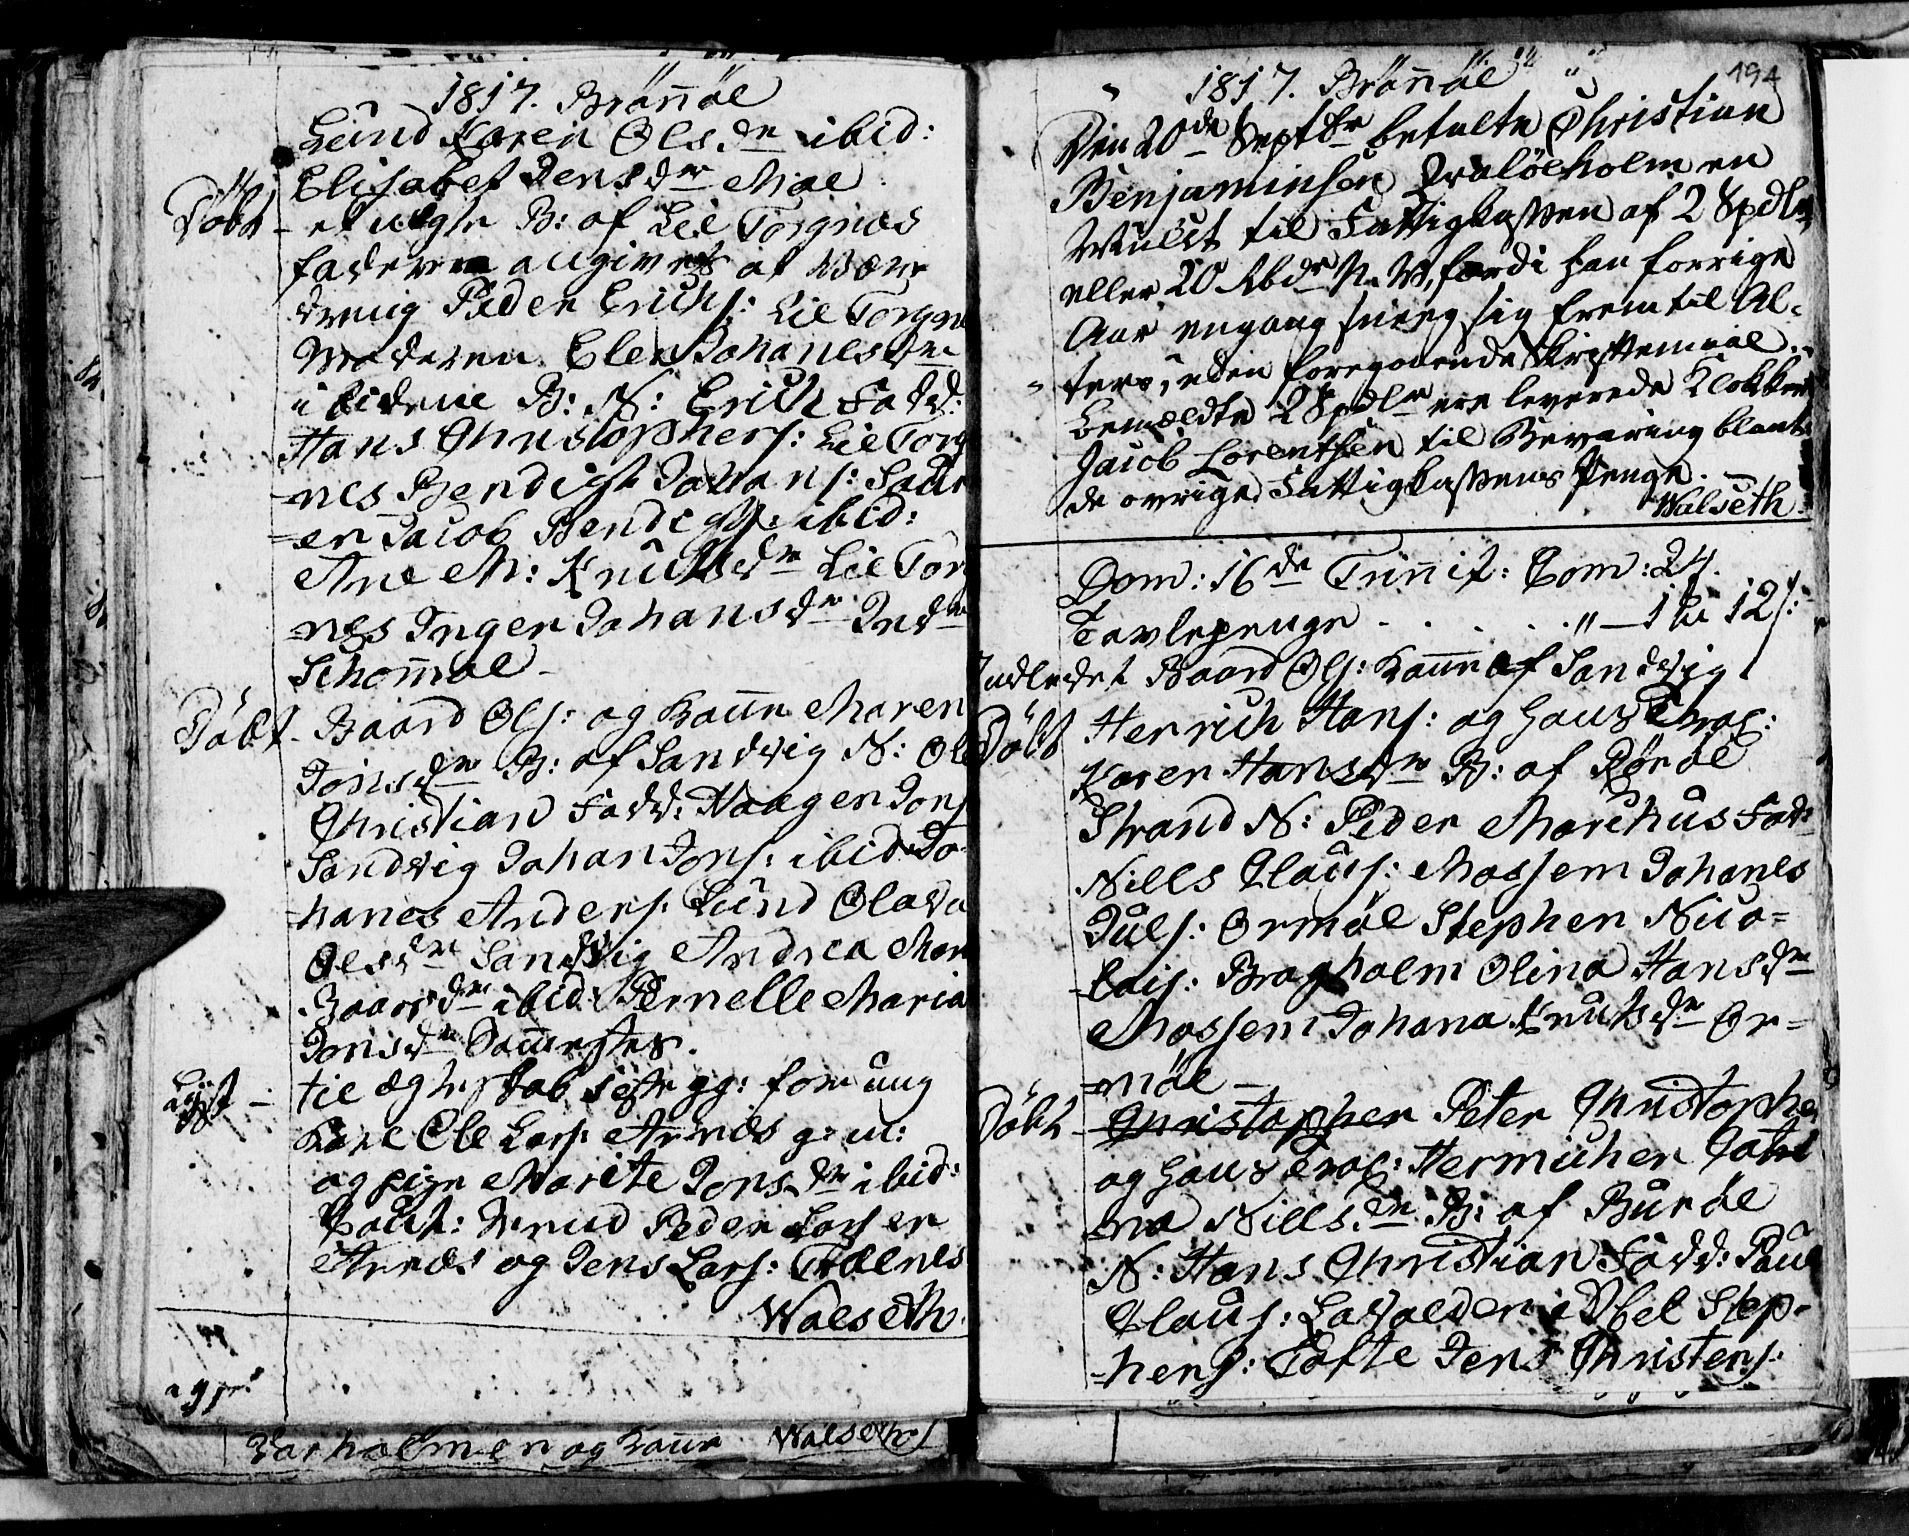 1817. Brönöe
Lund Karen Olsdr ibid:
Elisabet Jensdr Moe
Döbt - et uegte B: af Lil Torgnæs
faderen angives at være
dreng Peder Erichs: Lil Torgnæ
Moderen Elen Johanesdr
ibidem B: N: Erich Fadd:
Hans Christophers: Lil Torg
=nes Bendigt Johans: Saur
=en Jacob Bendigs: ibid:
Ane M: Knudsdr Lil Torg
=nes Inger Johansdr Indr
Schomoe -
Döbt - Baard Ols: og Konne Maren
Jonsdr B: af Sandvig N: Ole
Christian Fadd: Haagen Jons
Sandvig Johan Jons: ibid Jo
=hanes Anders: Lund Olava
Olsdr Sandvig Andrea Mar
Baardsdr ibid: Pernelle Maria
Jonsdr
Lyst - til ægteskab 1ste gg: for ung
Karl Ole Lars: Arnæs g: u:
og pige Marite Jonsdr ibid:
Caut: Knud Peder Lars en
Arnæs og Jens Lars: Tilrem
Walseth
Varholmen og Konne Walseth
194
1817. Brönöe
Den 20de Septbr betalte Christian
Benjaminsen Qvaløeholm en
Mulct til Fattigkassen af 2 Spdlr
eller 20 Rbdr N. V. fordi han forrige
Aar engang sneeg sig frem til Al-
ters, uden foregaaende Skriftemaal.
Bemeldte 2 Spdlr ere leverede Klokker
Jacob Lorentsen til Bevaring blant
de øvrige Fattigkassens Penge.
Walseth
Dom: 16de Trinit: Com: 24.
Tavlepenge . . . . . " - 1 12 s:
Indledet Baard Ols: Konne af Sandvig
Döbt Henrich Hans: og hans
Karen Hansdr B: af Röröe
Strand N: Peder Marchus Fad:
Nills Claus: Mosjem Johanes
Juls: Ormöe Stephen Nico=
=lais: Bragholm Olina Hansdr
Mosjem Johana Knudsdr Or=
=möe -
Döbt - Christopher Peter Christophe
og hans Hermicher
na Nillsdr B: af Buröe
N: Hans Christian Fadd: Paul
Claus: Abel Step=
=hens: Tofte Jens Christens: